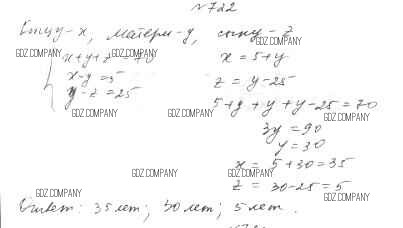 №722
Отцу-x, матери-y, сыну-z
GDZ.COMPANY GDZ.COMPANY
x+y+z=70 x=5+y
x-y=5 GDZ.COMPANY GDZ.COMPANY
y-z=25 z=y-25
5+y+y+y-25=70
GDZ.COMPANY GDZ.COMPANY GDZ.COMPANY
3y=90
y=30
GDZ.COMPANY GDZ.COMPANY
x=5+30=35
GDZ.COMPANY z=30-25=5
GDZ.COMPANY
Ответ: 35 лет; 30 лет; 5 лет.
GDZ.COMPANY